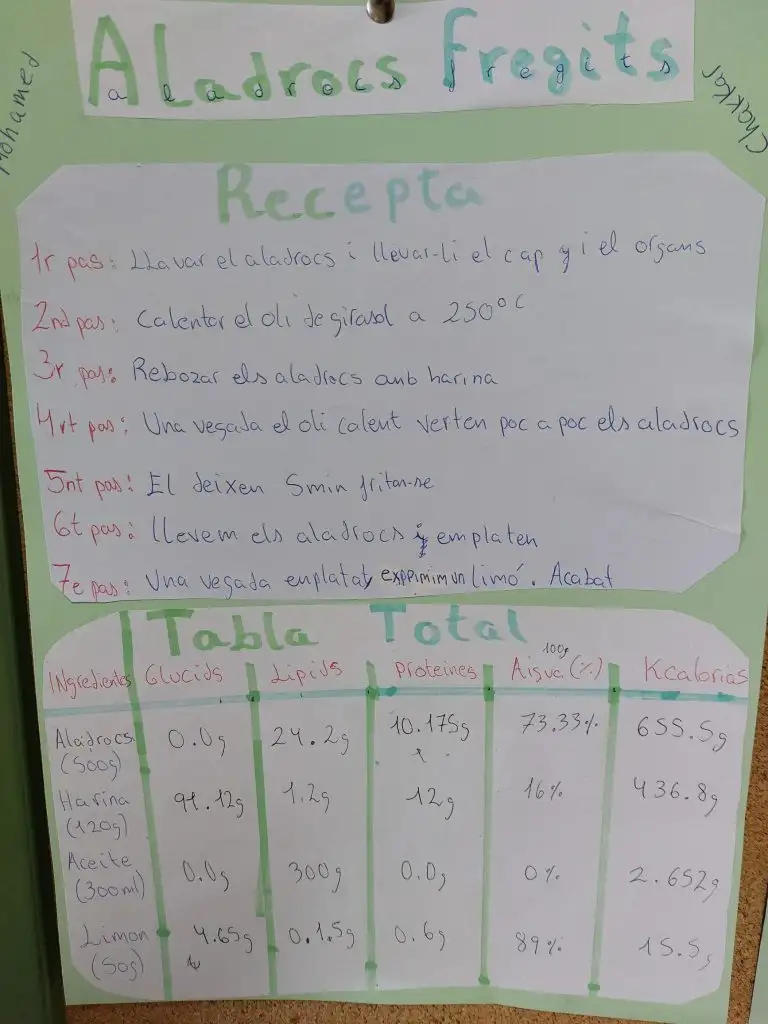 Aladrocs Fregits
aladrocs fregits
Mohamed
Chakkar
Recepta
1r pas: Llavar el aladrocs i llevar-li el cap y i el organs
2nd pas: Calentar el oli de girasol a 250°C
3r pas: Rebozar els aladrocs amb harina
4rt pas: Una vegada el oli calent verten poc a poc els aladrocs
5nt pas: El deixen 5min fritan-se
6t pas: llevem els aladrocs i emplaten
7e pas: Una vegada enplatat, exprimim un limó. Acabat
Tabla Total
Ingredients Glucids Lipids Proteines Aigua (%) 100g Kcalorias
Aladrocs (500g) 0.0g 24.2g 10.175g 73.33% 655.5g
Harina (120g) 91.12g 1.2g 12g 16% 436.8g
Aceite (300ml) 0.0g 300g 0.0g 0% 2.652g
Limon (50g) 4.65g 0.1.5g 0.6g 89% 15.5g